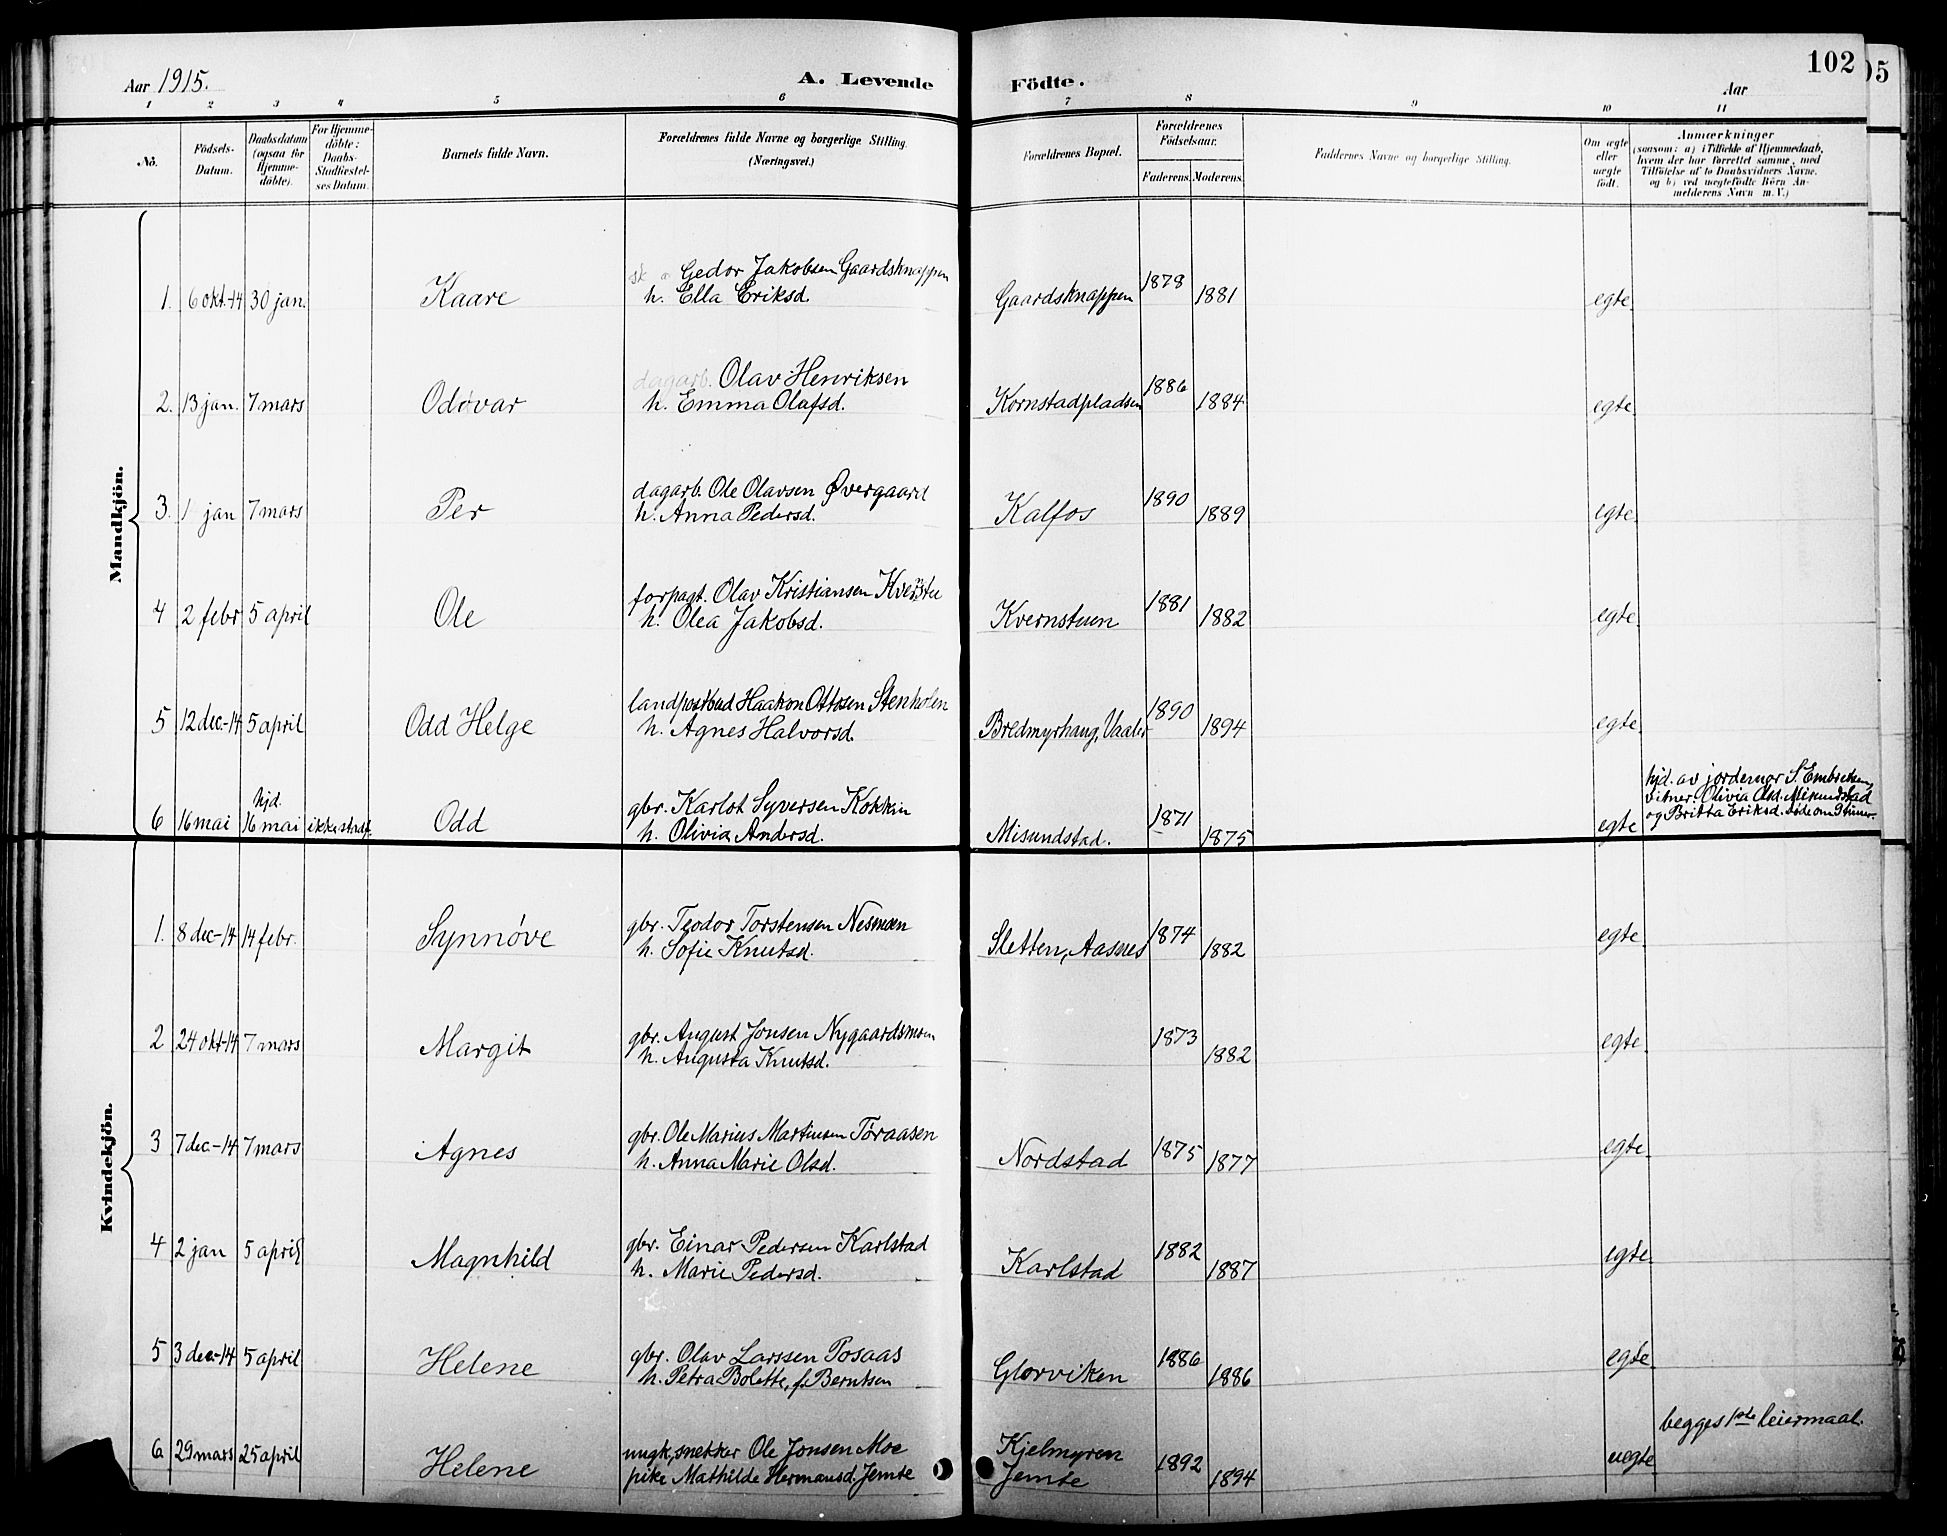 Aar 1915.
A. Levende
Födte.
Aar
102
05
1 2 3 4 5 6 7 8 9 10 11
No.
Födsels-Datum.
Daabsdatum (ogsaa for Hjemme-döbte).
For Hjemme-döbte: Daabs-Stadfæstel-ses Datum.
Barnets fulde Navn.
Forældrenes fulde Navne og borgerlige Stilling. (Næringsvei.)
Forældrenes Bopæl.
Forældrenes Födselsaar.
Faderens. Moderens.
Faddernes Navne og borgerlige Stilling.
Om ægte eller uægte födt.
Anmærkninger
(saasom: a) i Tilfælde af Hjemmedaab, hvem der har forrettet samme, med Tilföielse af to Daabsvidners Navne, og b) ved uægtefödte Börn An-melderens Navn m. V.)
Mandkjön.
1. 6 okt.-14 30 jan. Kaare Gedor Jakobsen Gaardsknappen Gaardsknappen 1878 1881 egte
h. Ella Eriksd.
2. 13 jan. 7 mars Oddvar dagarb. Olav Henriksen Kornstadpladsen 1886 1884 egte
h. Emma Olafsd.
3. 1 jan 7 mars Per dagarb. Ole Olavsen Øvergaard Kalfos 1890 1889 egte
h. Anna Pedersd.
4 2 febr 5 april Ole forpagt. Olav Kristiansen Kvernstu Kvernstuen 1881 1882 egte
h. Olea Jakobsd.
5 12 dec.-14 5 april Odd Helge landpostbud Haakon Ottosen Stenholen Bredmyrhaug, Vaaler 1890 1894 egte
h. Agnes Halvorsd.
6 16 mai hjd. 16 mai ikke stadf. Odd gbr. Karlot Syversen Kokkin Misundstad. 1871 1875 egte
h. Olivia Andersd.
hjd. av jordemor S. Embretsen,
vitner: Olivia Olsd. Misundstad
og Britta Eriksd. døde om 9 timer.
Kvindekjön.
1. 8 dec-14 14 febr. Synnøve gbr. Teodor Torstensen Nesmoen Sletten, Aasnes 1874 1882 egte
h. Sofie Knutsd.
2 24 okt-14 7 mars Margit gbr. August Jonsen Nygaardsmoen 1873 1882 egte
h. Augusta Knutsd.
3 7 dec.-14 7 mars Agnes gbr. Ole Marius Martinsen Tøraasen Nordstad 1875 1877 egte
h. Anna Marie Olsd.
4 2 jan 5 april Magnhild gbr. Einar Pedersen Karlstad Karlstad 1882 1887 egte
h. Marie Pedersd.
5 3 dec.-14 5 april Helene gbr. Olav Larssen Posaas Glorviken 1886 1886 egte
h. Petra Bolette, f. Berntsen
6 29 mars 25 april Helene ungk, snekker Ole Jonsen Moe Kjelmyren 1892 1894 uegte
pike Mathilde Hermansd. Jemte Jemte
begges 1ste leiermaal.